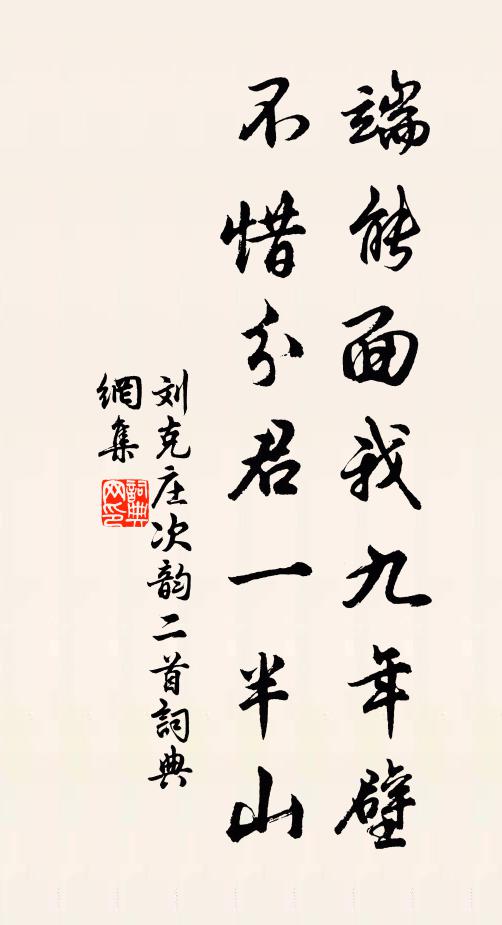 端能面我九年壁
不惜分君一半山
刘克庄次韵二首詞典
網集
詞典
网印